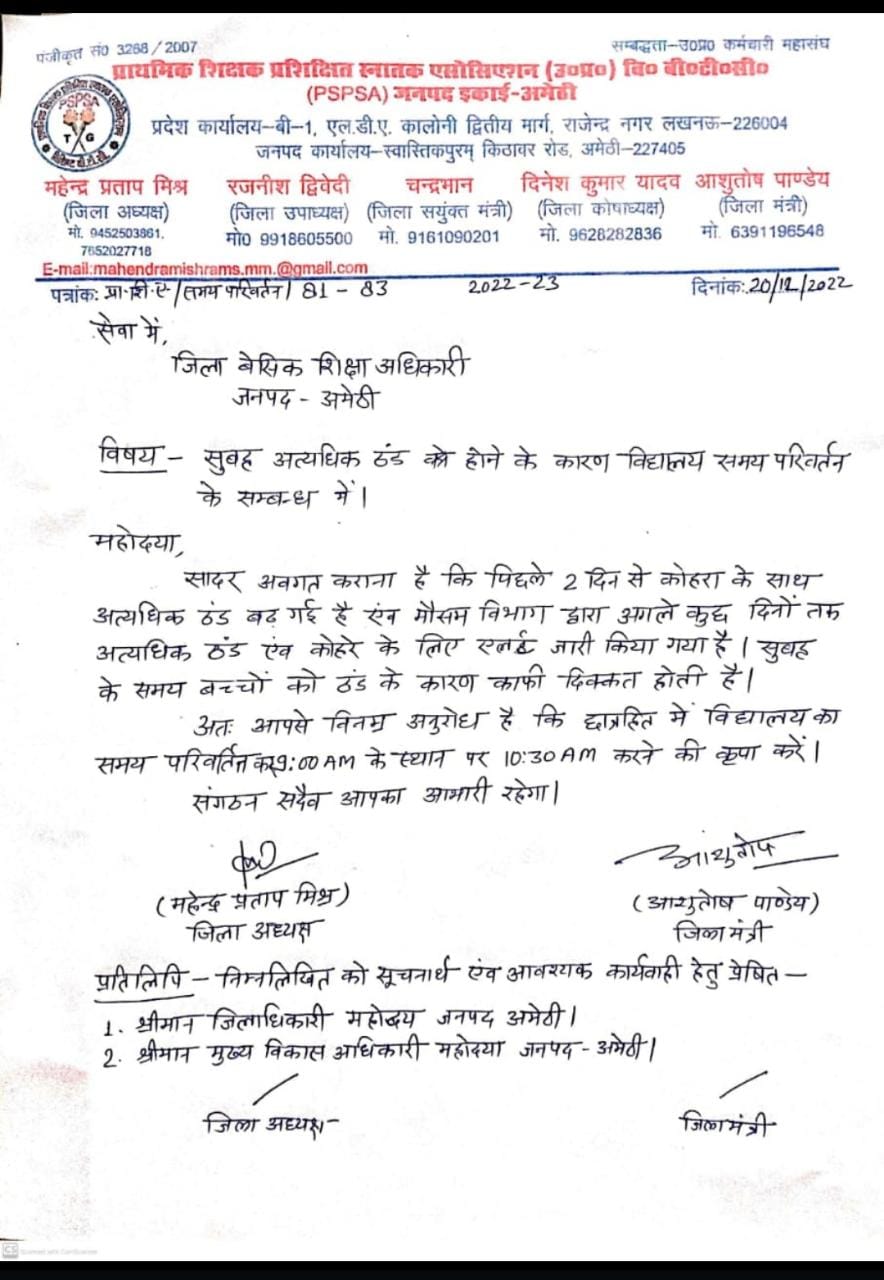 पंजीकृत सं0 3268 / 2007
सम्बद्धता–उ0प्र0 कर्मचारी महासंघ
प्राथमिक शिक्षक प्रशिक्षित स्नातक एसोसिएशन (उ०प्र०) वि० बी०टी०सी०
(PSPSA) जनपद इकाई-अमेठी
PSPSA
T G
प्रदेश कार्यालय–बी–1, एल.डी.ए. कालोनी द्वितीय मार्ग, राजेन्द्र नगर लखनऊ–226004
जनपद कार्यालय–स्वास्तिकपुरम् किठावर रोड, अमेठी–227405
महेन्द्र प्रताप मिश्र रजनीश द्विवेदी चन्द्रभान दिनेश कुमार यादव आशुतोष पाण्डेय
(जिला अध्यक्ष) (जिला उपाध्यक्ष) (जिला सयुंक्त मंत्री) (जिला कोषाध्यक्ष) (जिला मंत्री)
मो. 9452503861, मो0 9918605500 मो. 9161090201 मो. 9628282836 मो. 6391196548
7652027718
E-mail:mahendramishrams.mm.@gmail.com
पत्रांक: प्रा.शि.ए/(समय परिवर्तन) 81 - 83 2022-23 दिनांक:.20/12/2022
सेवा में,
जिला बेसिक शिक्षा अधिकारी
जनपद - अमेठी
विषय - सुबह अत्यधिक ठंड होने के कारण विद्यालय समय परिवर्तन
के सम्बन्ध में।
महोदया,
सादर अवगत कराना है कि पिछले 2 दिन से कोहरा के साथ
अत्यधिक ठंड बढ़ गई है एंव मौसम विभाग द्वारा अगले कुछ दिनों तक
अत्यधिक ठंड एंव कोहरे के लिए एलर्ट जारी किया गया है। सुबह
के समय बच्चों को ठंड के कारण काफी दिक्कत होती है।
अतः आपसे विनम्र अनुरोध है कि छात्रहित में विद्यालय का
समय परिवर्तित कर 9:00 AM के स्थान पर 10:30 AM करने की कृपा करें।
संगठन सदैव आपका आभारी रहेगा।
आशुतोष
(महेन्द्र प्रताप मिश्र) (आशुतोष पाण्डेय)
जिला अध्यक्ष जिला मंत्री
प्रतिलिपि - निम्नलिखित को सूचनार्थ एंव आवश्यक कार्यवाही हेतु प्रेषित -
1. श्रीमान जिलाधिकारी महोदय जनपद अमेठी।
2. श्रीमान मुख्य विकास अधिकारी महोदया जनपद - अमेठी।
जिला अध्यक्ष जिला मंत्री
CS Scanned with CamScanner